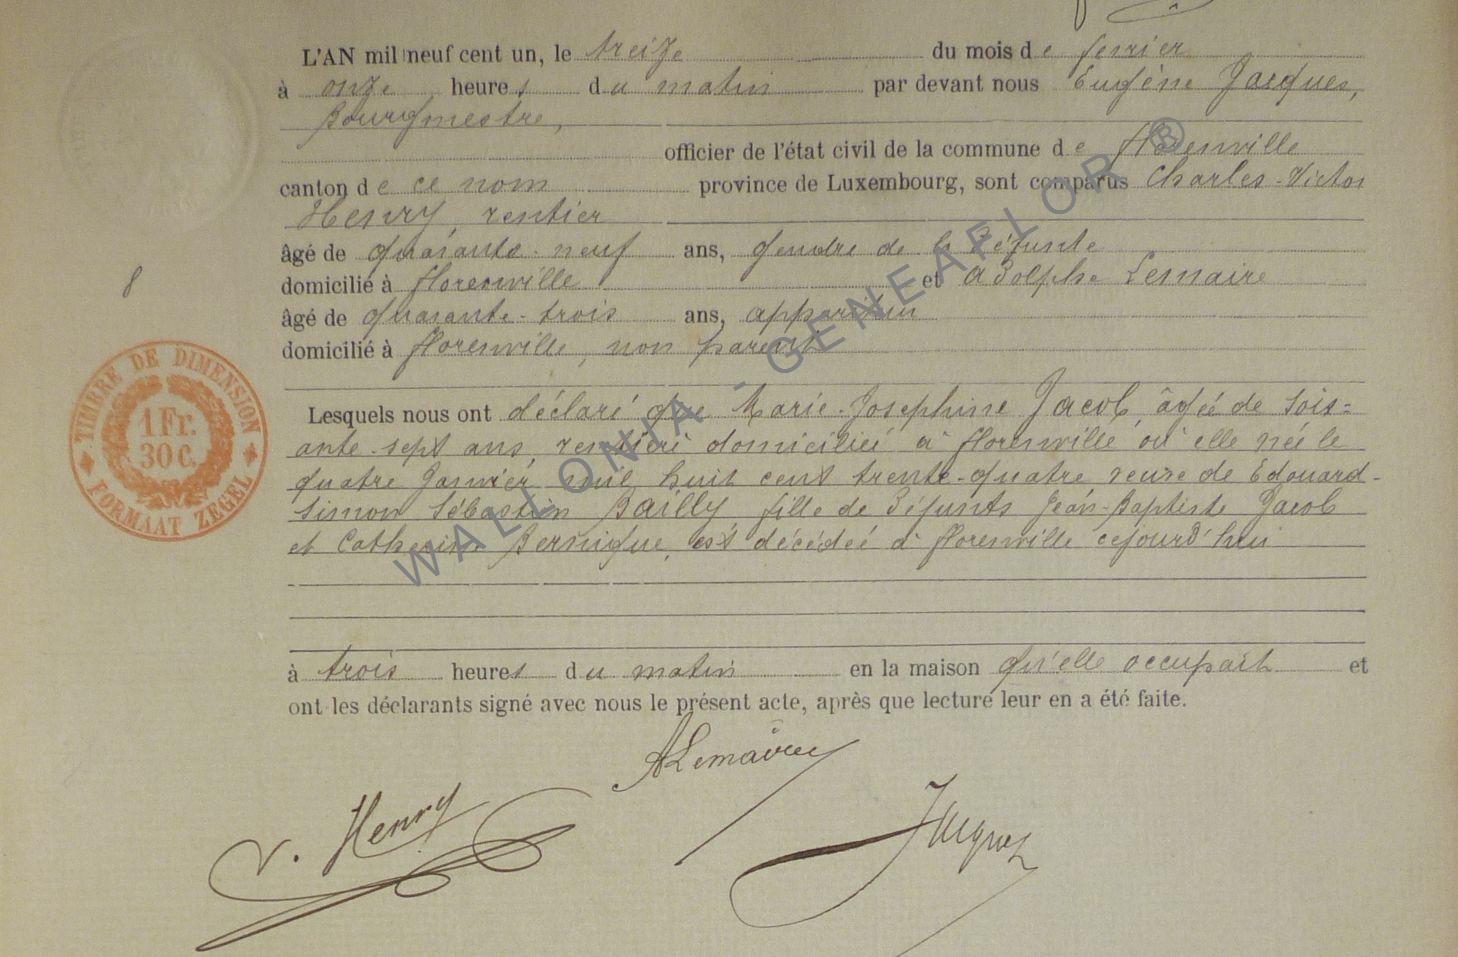 L'AN mil neuf cent un, le treize du mois de fevrier
à onze heures du matin par devant nous Eugène Jacques,
Bourgmestre,
officier de l'état civil de la commune de Florenville
canton de ce nom province de Luxembourg, sont comparus Charles-Victor
Henry, rentier
âgé de quarante-neuf ans, gendre de la défunte
domicilié à Florenville et Adolphe Lemaire
8
âgé de quarante-trois ans, appariteur
domicilié à Florenville, non parent
TIMBRE DE DIMENSION
1 Fr.
30 C.
FORMAAT ZEGEL
Lesquels nous ont déclaré que Marie-Josephine Jacob, âgée de sois=
ante-sept ans, rentière domiciliée à Florenville où elle née le
quatre Janvier mil huit cent trente-quatre veuve de Edouard-
Simon Sébastien Bailly fille de défunts Jean-Baptiste Jacob
et Catherine Bernique, est décédée à Florenville cejourd'hui
à trois heures du matin en la maison qu'elle occupait et
ont les déclarants signé avec nous le présent acte, après que lecture leur en a été faite.
ALemaire
V. Henry
Jacques
WALLONIA - GENEAFLOR ®